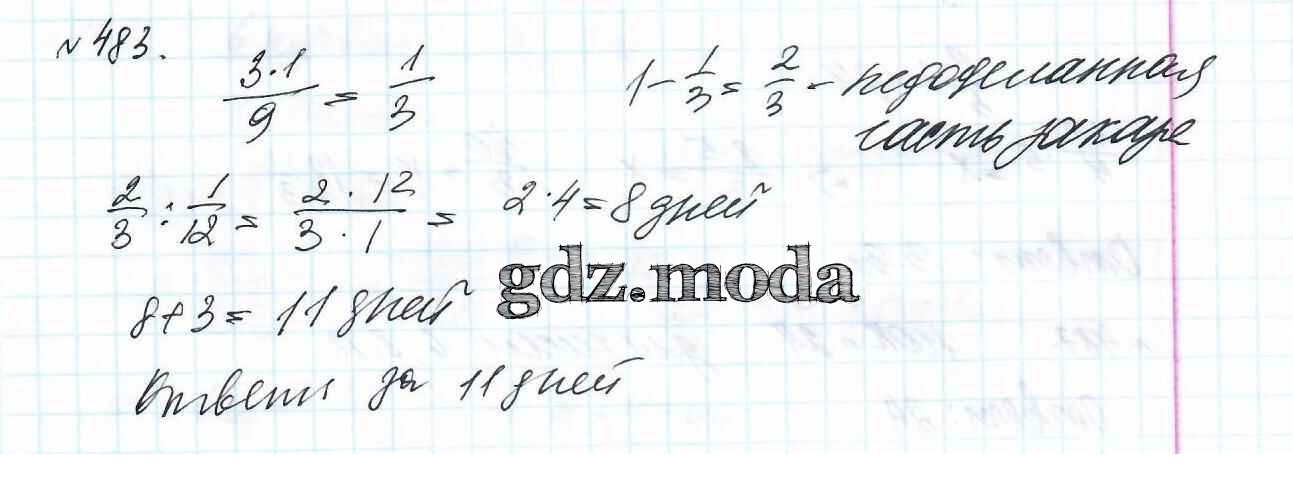 № 483.
3·1/9 = 1/3
1 - 1/3 = 2/3 - недоделанная
часть заказа
2/3 : 1/12 = 2·12/3·1 = 2·4 = 8 дней
gdz.moda
8+3 = 11 дней
Ответ: за 11 дней